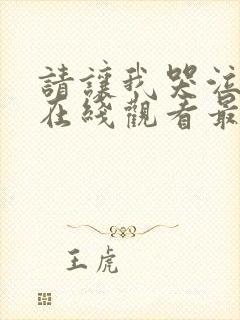 請讓我哭泣
在綫觀看最
王虎